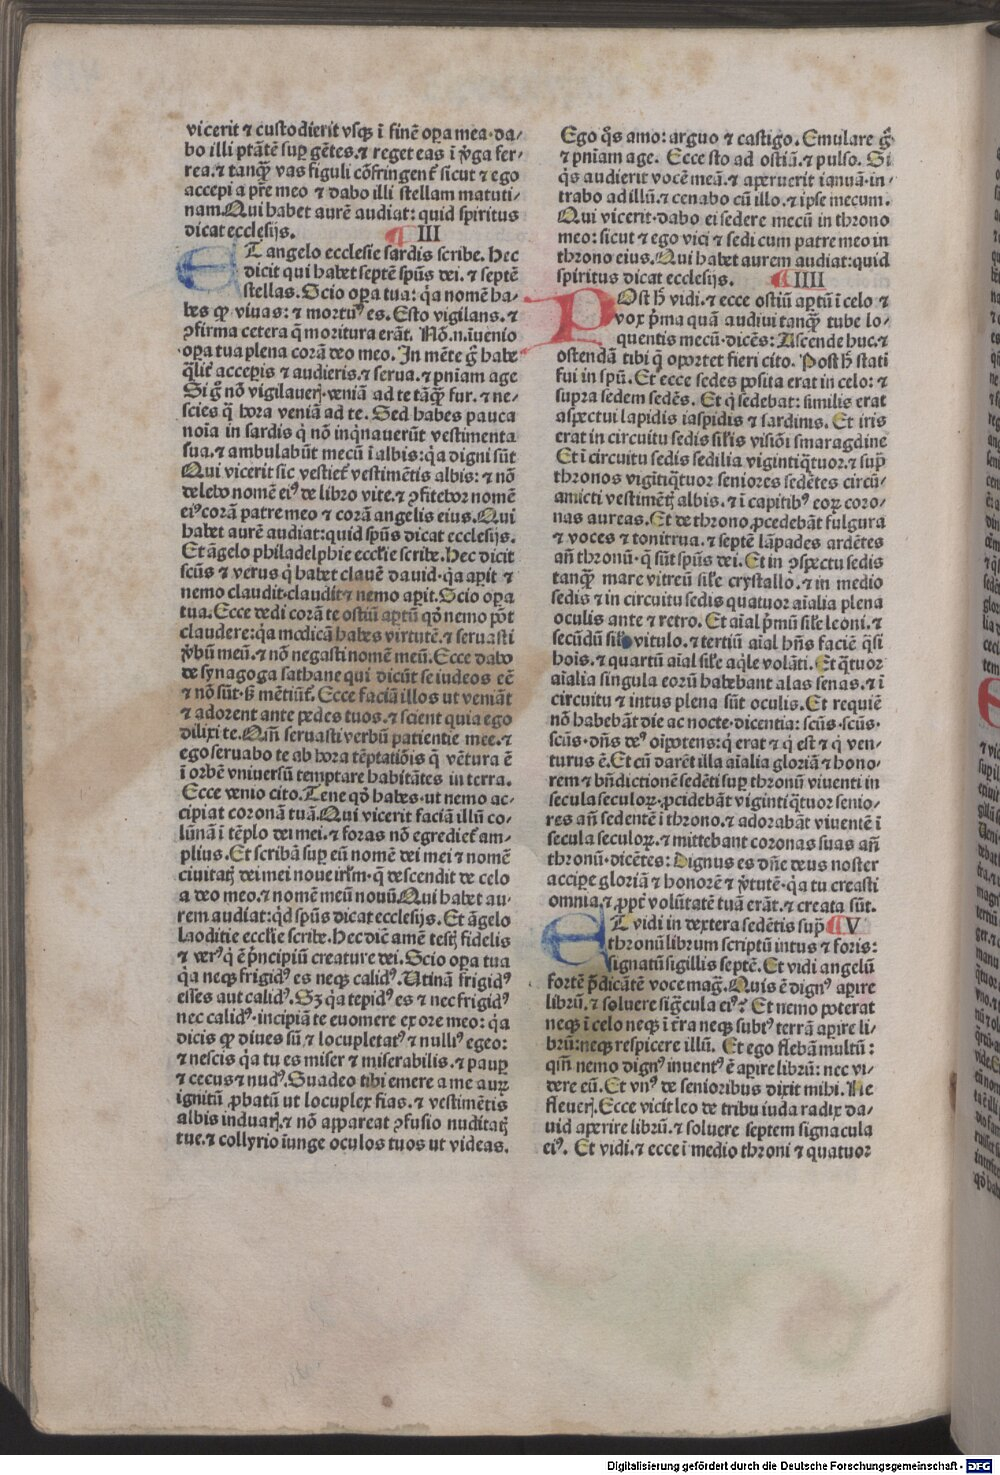 vicerit ⁊ custodierit vsqꝫ ī finē oꝑa mea·da/
bo illi ptātē suꝑ gētes.⁊ reget eas ī ꝟga fer/
rea.⁊ tanqꝫ̄ vas figuli cōfringent̄ sicut ⁊ ego
accepi a pr̄e meo ⁊ dabo illi stellam matuti/
nam.Qui habet aurē audiat: quid spiritus
dicat ecclesijs. III
ET angelo ecclesie sardis scribe. Hec
dicit qui habet septē spūs dei. ⁊ septē
stellas. Scio oꝑa tua: q̇a nomē ha/
bes ꝙ viuas: ⁊ mortuꝰ es. Esto vigilans. ⁊
ꝯfirma cetera q̄ moritura erāt. Nō.n.īuenio
oꝑa tua plena corā deo meo. In mēte g̊ habe
q̄lit̄ acceꝑis ⁊ audieris.⁊ serua.⁊ pn̄iam age
Si g̊ nō vigilauerꝭ·veniā ad te tāqꝫ̄ fur. ⁊ ne/
scies q̄ hora veniā ad te. Sed habes pauca
noīa in sardis q̇ nō inq̇nauerūt vestimenta
sua.⁊ ambulabūt mecū ī albis:q̇a digni sūt
Qui vicerit sic vestiet̄ vestimētis albis: ⁊ nō
delebo nomē eiꝰ de libro vite.⁊ ꝯfitebor nomē
eiꝰ corā patre meo ⁊ corā angelis eius.Qui
habet aurē audiat:quid spūs dicat ecclesijs.
Et āgelo philadelphie eccl̄ie scribe.Hec dicit
scūs ⁊ verus q̇ habet clauē dauid·q̇a aꝑit ⁊
nemo claudit·claudit ⁊ nemo aꝑit.Scio oꝑa
tua.Ecce dedi corā te ostiū aꝑtū qd̄ nemo pōt
claudere:q̇a modicā habes virtutē.⁊ seruasti
ꝟbū meū.⁊ nō negasti nomē meū.Ecce dabo
de synagoga sathane qui dicūt se iudeos eē
⁊ nō sūt·s̄ mētiūt̄.Ecce faciā illos ut veniāt
⁊ adorent ante pedes tuos.⁊ scient quia ego
dilixi te.Qm̄ seruasti verbū patientie mee.⁊
ego seruabo te ab hora tēptatiōis q̄ vētura ē
ī orbē vniuersū temptare habitātes in terra.
Ecce venio cito.Tene qd̄ habes·ut nemo ac/
cipiat coronā tuā.Qui vicerit faciā illū co/
lūnā ī tēplo dei mei.⁊ foras nō egrediet̄ am/
plius.Et scribā suꝑ eū nomē dei mei ⁊ nomē
ciuitatꝭ dei mei noue irl̄m·q̄ descendit de celo
a deo meo.⁊ nomē meū nouū.Qui habet au/
rem audiat:qd̄ spūs dicat ecclesijs.Et āgelo
laoditie eccl̄ie scribe.Hec dic̄ amē testꝭ fidelis
⁊ verꝰ q̇ ē ṗncipiū creature dei.Scio oꝑa tua
q̇a neqꝫ frigidꝰ es neqꝫ calidꝰ.Utinā frigidꝰ
esses aut calidꝰ.Sꝫ q̇a tepidꝰ es ⁊ nec frigidꝰ
nec calidꝰ·incipiā te euomere ex ore meo: q̇a
dicis ꝙ diues sū ⁊ locupletatꝰ ⁊ nulliꝰ egeo:
⁊ nescis q̇a tu es miser ⁊ miserabilis.⁊ pauꝑ
⁊ cecus ⁊ nudꝰ.Suadeo tibi emere a me auꝝ
ignitū ꝓbatū ut locuplex fias.⁊ vestimētis
albis induarꝭ.⁊ nō appareat ꝯfusio nuditatꝭ
tue.⁊ collyrio īunge oculos tuos ut videas.
Ego q̊s amo: arguo ⁊ castigo. Emulare g̊
⁊ pn̄iam age. Ecce sto ad ostiā.⁊ pulso. Si
q̇s audierit vocē meā.⁊ aperuerit ianuā·in/
trabo ad illū.⁊ cenabo cū illo.⁊ ip̄e mecum.
Qui vicerit·dabo ei sedere mecū in throno
meo: sicut ⁊ ego vici ⁊ sedi cum patre meo in
throno eius.Qui habet aurem audiat:quid
spiritus dicat ecclesijs. IIII
POst h̄ vidi.⁊ ecce ostiū aꝑtū ī celo ⁊
vox ṗma quā audiui tanqꝫ̄ tube lo/
quentis mecū·dicēs: Ascende huc.⁊
ostendā tibi q̄ oportet fieri cito. Post h̄ stati
fui in spū. Et ecce sedes posita erat in celo: ⁊
supra sedem sedēs. Et q̇ sedebat: similis erat
aspectui lapidis iaspidis ⁊ sardinis. Et iris
erat in circuitu sedis sil̄is visiōi smaragdine
Et ī circuitu sedis sedilia vigintiq̄tuor.⁊ suꝑ
thronos vigītiq̄tuor seniores sedētes circū/
amicti vestimētꝭ albis.⁊ ī capitibꝰ eoꝝ coro/
nas aureas.Et de throno ꝓcedebāt fulgura
⁊ voces ⁊ tonitrua.⁊ septē lāpades ardētes
an̄ thronū·q̇ sūt spūs dei.Et in ꝯspectu sedis
tanqꝫ̄ mare vitreū sil̄e crystallo.⁊ in medio
sedis ⁊ in circuitu sedis quatuor aīalia plena
oculis ante ⁊ retro. Et aīal ṗmū sil̄e leoni.⁊
secūdū sil̄e vitulo.⁊ tertiū aīal hn̄s faciē q̄si
hois.⁊ quartū aīal sil̄e aq̇le volāti. Et q̄tuor
aīalia singula eorū habebant alas senas.⁊ ī
circuitu ⁊ intus plena sūt oculis.Et requiē
nō habebāt die ac nocte·dicentia: scūs·scūs·
scūs·dn̄s deꝰ oīpotens:q̇ erat ⁊ q̇ est ⁊ q̇ ven/
turus ē.Et cū darēt illa aīalia gloriā ⁊ hono/
rem ⁊ bn̄dictionē sedēti suꝑ thronū viuenti in
secula seculoꝝ·ꝓcidebāt vigintiq̄tuor senio/
res an̄ sedentē ī throno.⁊ adorabāt viuentē ī
secula seculoꝝ.⁊ mittebant coronas suas an̄
thronū·dicētes: Dignus es dn̄e deus noster
accipe gloriā ⁊ honorē ⁊ ꝟtutē·q̇a tu creasti
omnia.⁊ ꝓpt̄ volūtatē tuā erāt.⁊ creata sūt.
ET vidi in dextera sedētis suꝑ V
thronū librum scriptū intus ⁊ foris:
signatū sigillis septē. Et vidi angelū
fortē p̄dicātē voce maḡ. Quis ē dignꝰ aperire
librū.⁊ soluere siḡcula eiꝰ? Et nemo poterat
neqꝫ ī celo neqꝫ ī t̄ra neqꝫ subtꝰ terrā aꝑire li/
brū:neqꝫ respicere illū. Et ego flebā multū:
qm̄ nemo dignꝰ inuentꝰ ē aꝑire librū: nec vi/
dere eū.Et vnꝰ de senioribus dixit mihi. Ne
fleuerꝭ.Ecce vicit leo de tribu iuda radix da/
uid aperire librū.⁊ soluere septem signacula
eiꝰ. Et vidi.⁊ ecce ī medio throni ⁊ quatuor
Digitalisierung gefördert durch die Deutsche Forschungsgemeinschaft - DFG